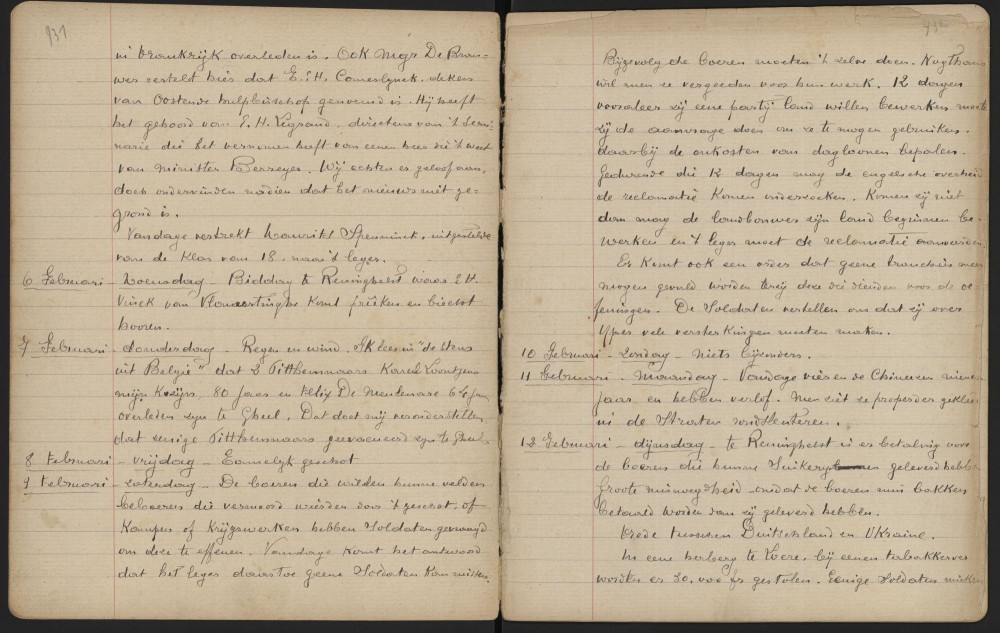 931
in Frankrijk overleden is. Ook Mgr De Brou-
wer vertelt hier dat E. H. Camerlynck, deken
van Oostende hulpbisschop genoemd is. Hij heeft
het gehoord van E. H. Legrand, directeur van 't Semi-
narie die het vernomen heeft van eenen heer die 't weet
van minister Berreyer. Wij echten er geloof aan,
doch ondervinden nadien dat het nieuws uit ge-
grond is.
Vandage vertrekt Maurits Spenninck, uitgestelde
van de klas van 18, naar 't leger.
6 Februari - Woensdag - Biddag te Reninghelst waar E H.
Vinck van Vlamertinghe komt preken en biecht
hooren.
7 Februari - Donderdag - Regen en wind. Ik lees in "de stem
uit België" dat 2 Pitthemnaars Karel Loontjens
mijn Kozijn, 80 jaar en Felix De Meulenaere 62 jaar
overleden zijn te Gheel. Dat doet mij veronderstellen
dat eenige Pitthemnaars geevacueerd zijn te Gheel.
8 Februari - vrijdag - Eamelijk geschot
9 Februari - zaterdag - De boeren die wilden hunne velden
beboeren die vernield wierden door 't geschot, of
Kampen of Krijgswerken hebben Soldaten gevraagd
om deze te effenen. Vandage komt het antwoord
dat het leger daartoe geene Soldaten kan missen.
932
Bijgevolg de boeren moeten 't zelve doen. Nogthans
wil men ze vergoeden voor hun werk. 12 dagen
vooraleer zij eene partij land willen bewerken moeten
zij de aanvrage doen om ze te mogen gebruiken,
daarbij de onkosten van dagloonen bepalen.
Gedurende die 12 dagen mag de engelsche overheid
de reclamatie komen onderzoeken. Komen zij niet
dan mag de landbouwer zijn land beginnen be-
werken en 't leger moet de reclamatie aanveerden.
Er komt ook een order dat geene tranchéen meer
mogen gevuld worden tenzij deze die dienden voor de oe
feningen. De Soldaten vertellen ons dat zij over
Ypres vele versterkingen moeten maken.
10 Februari - Zondag - niets bijzonders.
11 Februari - Maandag - Vandage vieren de Chineezen nieuw
jaar en hebben verlof. Men ziet ze properder gekleed
in de straten rondslenteren.
12 Februari - dijnsdag - te Reninghelst is er betaling voor
de boeren die hunne Suikerijboonen geleverd hebben
Groote misnoegdheid omdat de boeren min bakken
betaald worden dan zij geleverd hebben.
Vrede tusschen Duitschland en Ukraine.
In eene herberg te Locre, bij eenen tabakkerver
worden er 20.000 fr gestolen. Eenige Soldaten